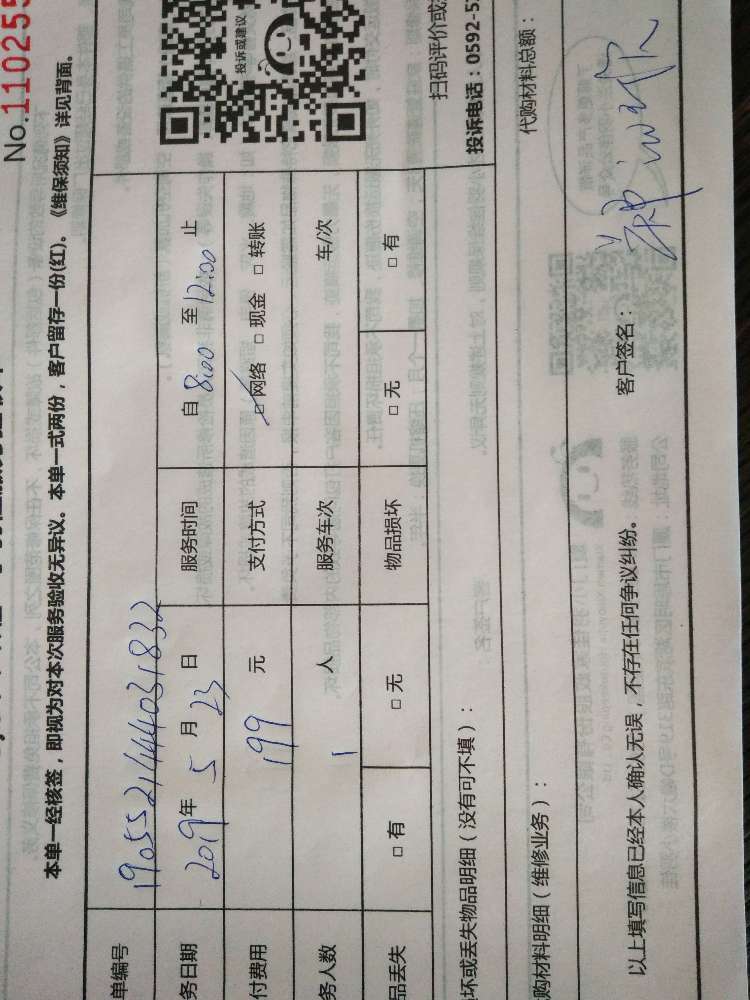 No.110255
本单一经核签，即视为对本次服务验收无异议。本单一式两份，客户留存一份(红)。《维保须知》详见背面。
单编号 1905521444031832
务日期 2019年 5 月 23 日 服务时间 自 8:00 至 12:00 止
付费用 199 元 支付方式 □网络 □现金 □转账
务人数 1 人 服务车次 车/次
品丢失 □有 □无 物品损坏 □无 □有
投诉或建议
扫码评价或
投诉电话：0592-5
坏或丢失物品明细（没有可不填）：
购材料明细（维修业务）： 代购材料总额：
以上填写信息已经本人确认无误，不存在任何争议纠纷。 客户签名：